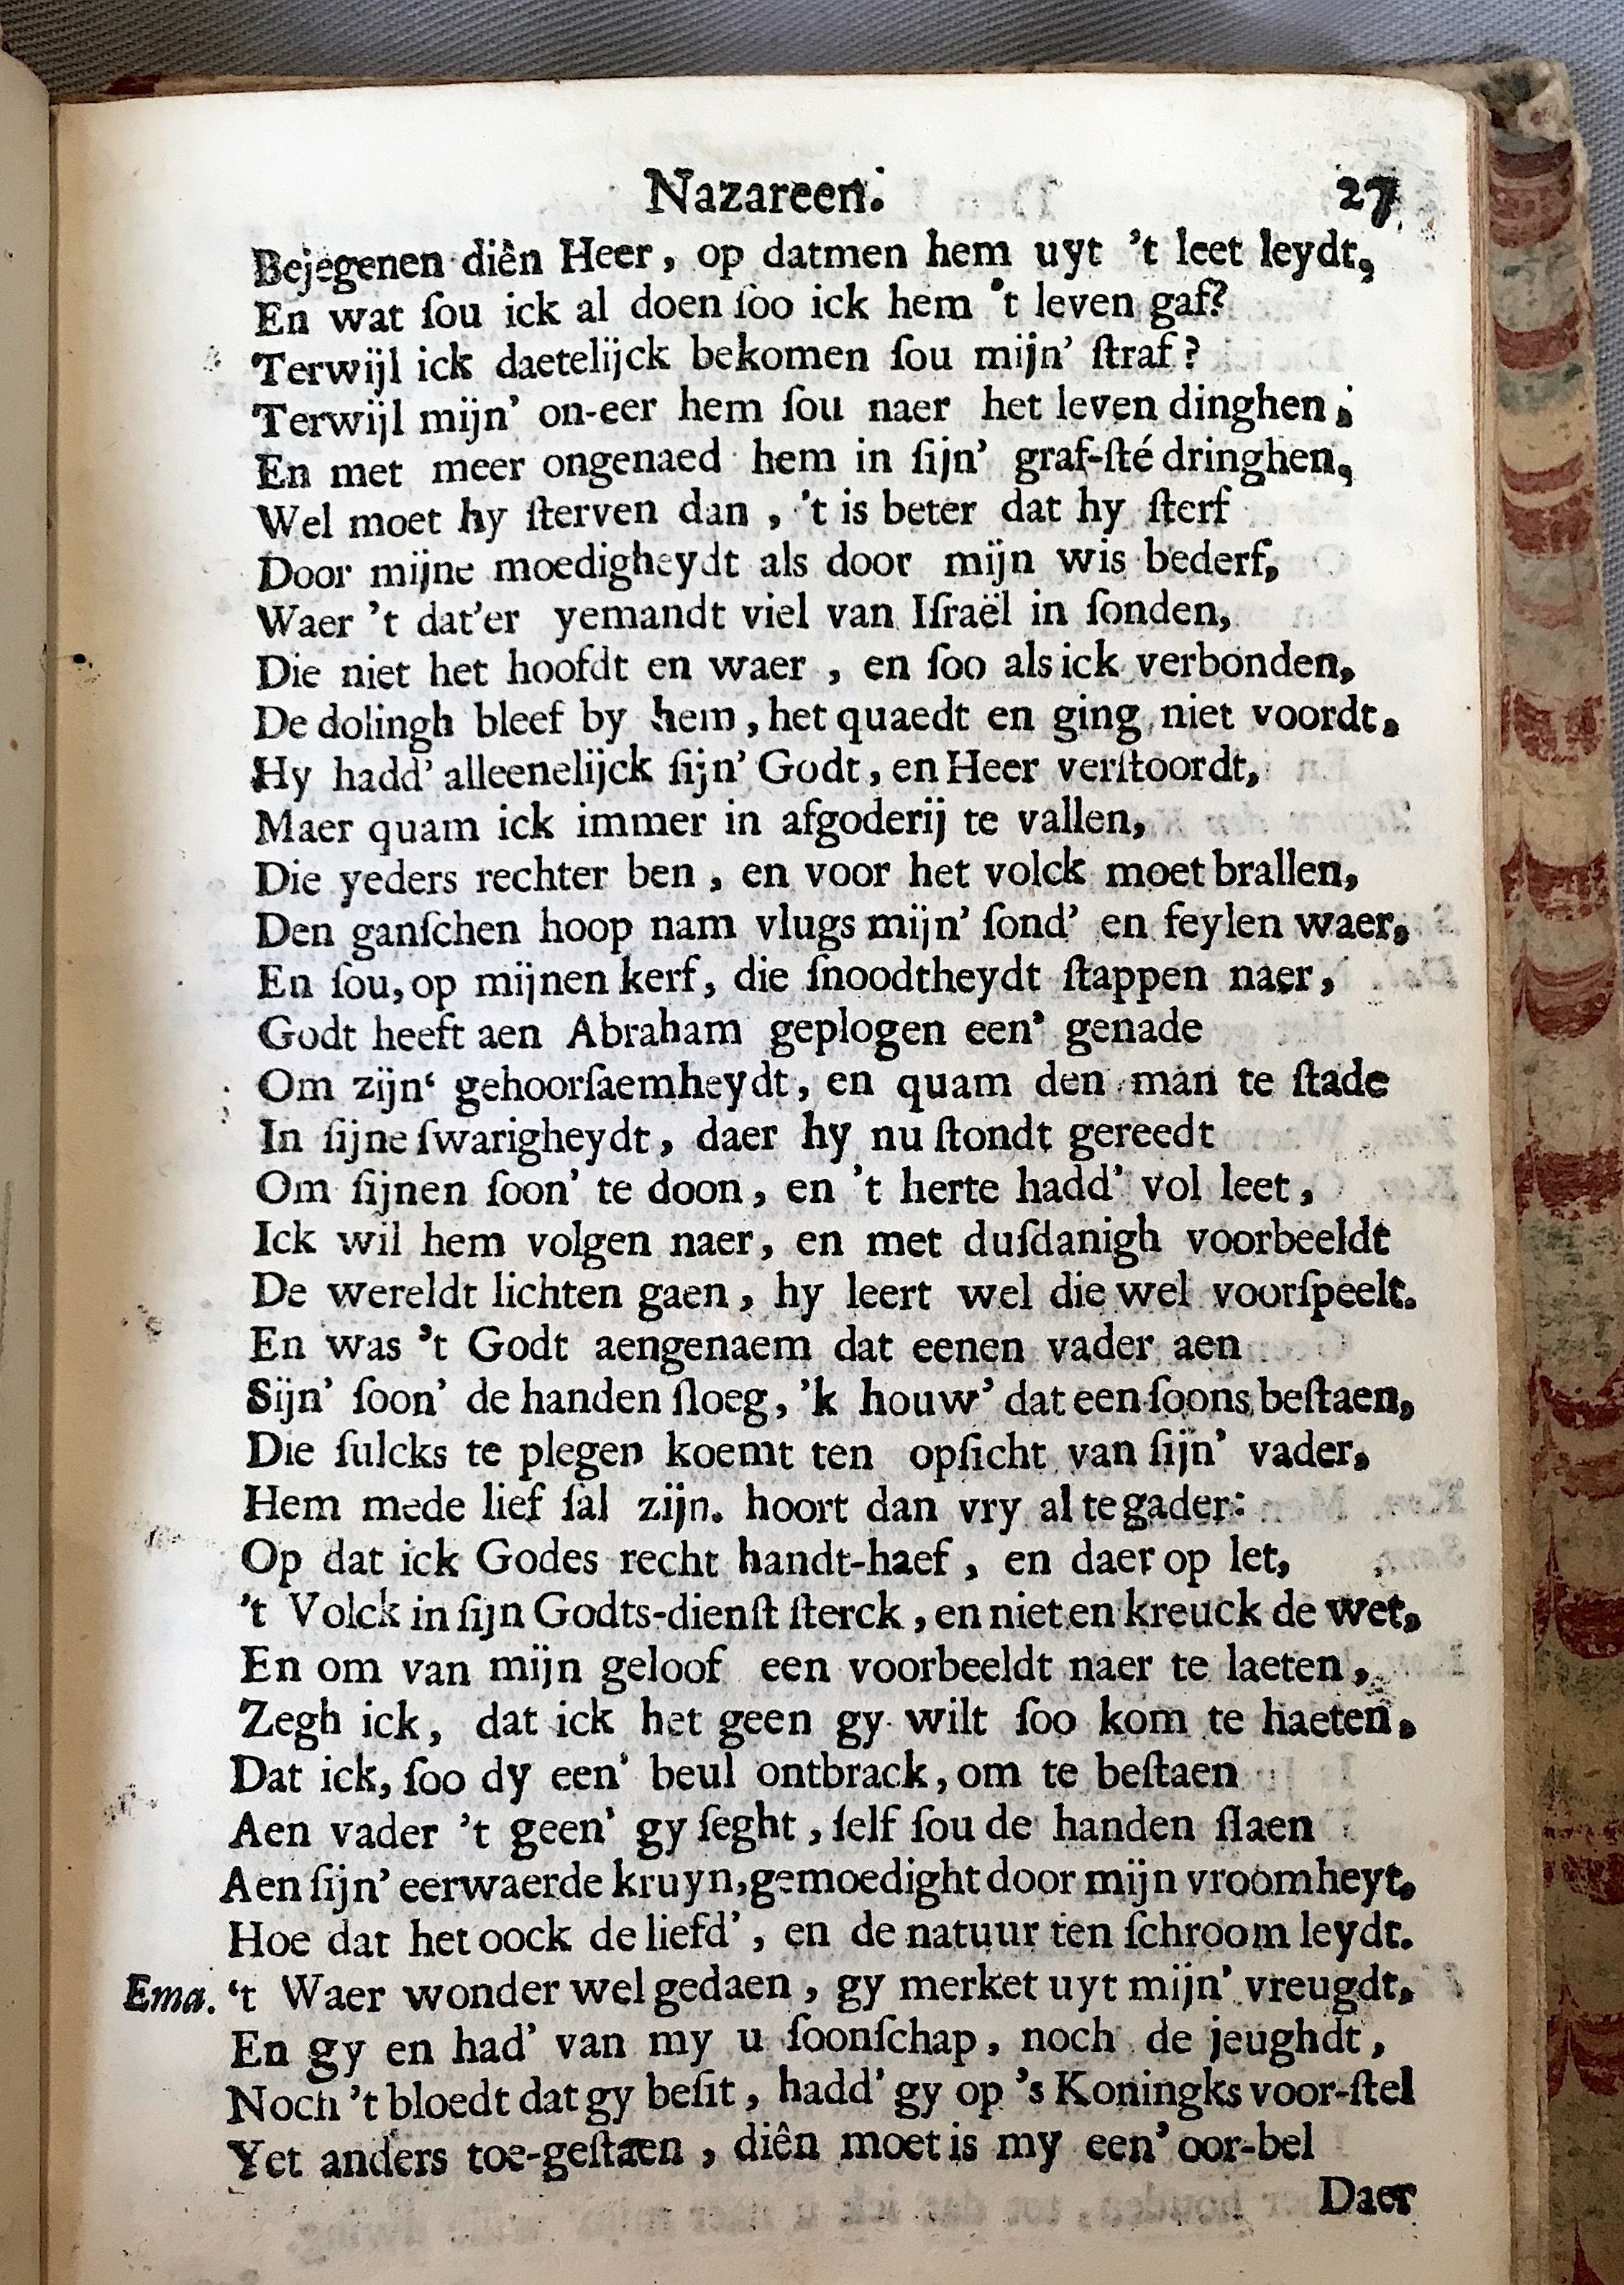 Nazareen. 27
Bejegenen diên Heer, op datmen hem uyt 't leet leydt,
En wat ſou ick al doen ſoo ick hem 't leven gaf?
Terwijl ick daetelijck bekomen ſou mijn' ſtraf?
Terwijl mijn' on-eer hem ſou naer het leven dinghen;
En met meer ongenaed hem in ſijn' graf-ſté dringhen,
Wel moet hy ſterven dan, 't is beter dat hy ſterf
Door mijne moedigheydt als door mijn wis bederf,
Waer 't dat'er yemandt viel van Iſraël in ſonden,
Die niet het hoofdt en waer, en ſoo als ick verbonden,
De dolingh bleef by hem, het quaedt en ging niet voordt,
Hy hadd' alleenelijck ſijn' Godt, en Heer verſtoordt,
Maer quam ick immer in afgoderij te vallen,
Die yeders rechter ben, en voor het volck moet brallen,
Den ganſchen hoop nam vlugs mijn' ſond' en feylen waer,
En ſou, op mijnen kerf, die ſnoodtheydt ſtappen naer,
Godt heeft aen Abraham geplogen een' genade
Om zijn‘ gehoorſaemheydt, en quam den man te ſtade
In ſijne ſwarigheydt, daer hy nu ſtondt gereedt
Om ſijnen ſoon' te doon, en 't herte hadd' vol leet,
Ick wil hem volgen naer, en met duſdanigh voorbeeldt
De wereldt lichten gaen, hy leert wel die wel voorſpeelt.
En was 't Godt aengenaem dat eenen vader aen
Sijn' ſoon' de handen ſloeg, 'k houw' dat een ſoons beſtaen,
Die ſulcks te plegen koemt ten opſicht van ſijn' vader,
Hem mede lief ſal zijn. hoort dan vry al te gader:
Op dat ick Godes recht handt-haef, en daer op let,
't Volck in ſijn Godts-dienſt ſterck, en niet en kreuck de wet,
En om van mijn geloof een voorbeeldt naer te laeten,
Zegh ick, dat ick het geen gy wilt ſoo kom te haeten,
Dat ick, ſoo dy een' beul ontbrack, om te beſtaen
Aen vader 't geen' gy ſeght, ſelf ſou de handen ſlaen
Aen ſijn' eerwaerde kruyn, gemoedight door mijn vroomheyt,
Hoe dat het oock de liefd', en de natuur ten ſchroom leydt.
Ema. ‘t Waer wonder wel gedaen, gy merket uyt mijn' vreugdt,
En gy en had' van my u ſoonſchap, noch de jeughdt,
Noch 't bloedt dat gy beſit, hadd' gy op 's Koningks voor-ſtel
Yet anders toe-geſtaen, diên moet is my een' oor-bel
Daer